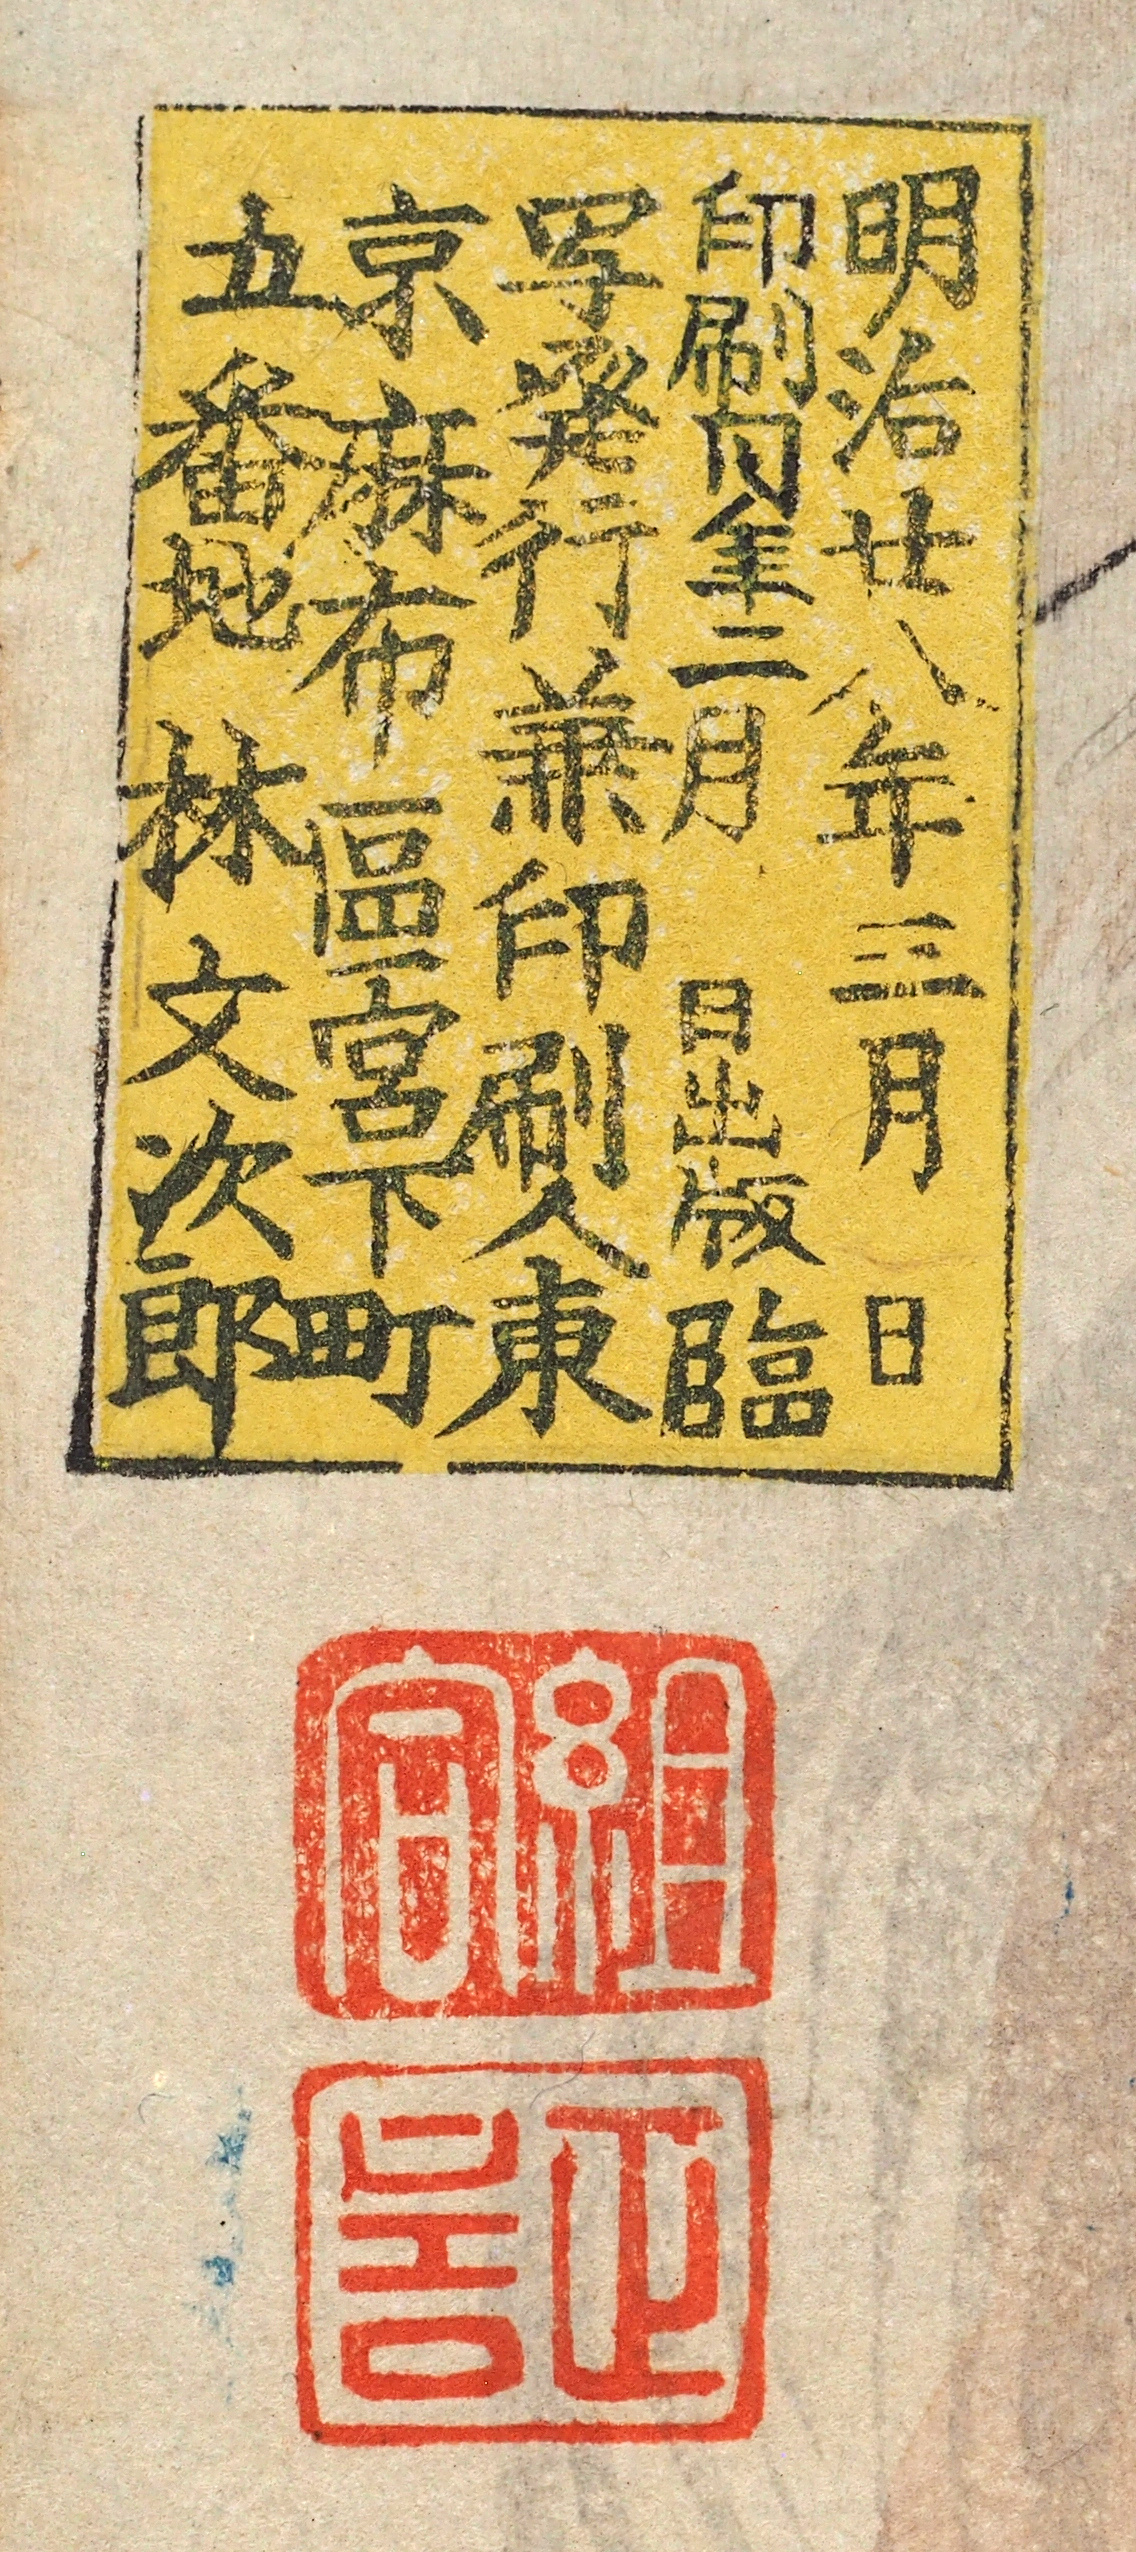 明治廿八年三月 日
印刷同年三月 日出版臨
写発行兼印刷人東
京麻布區宮下町
五番地 林文次郎